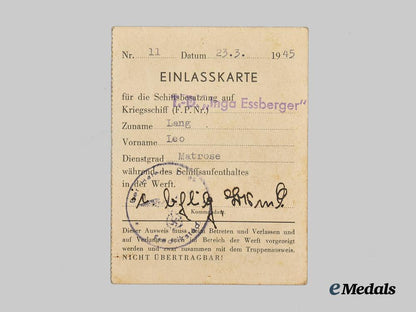 Nr. 11 Datum 23.3. 1945
EINLASSKARTE
für die Schiffsbesatzung auf
T.-D. „Inga Essberger"
Kriegsschiff (F. P. Nr.)
Zuname Lang
Vorname Leo
Dienstgrad Matrose
während des Schiffsaufenthaltes
in der Werft.
Dieser Ausweis muss beim Betreten und Verlassen und
auf Verlangen im Bereich der Werft vorgezeigt
werden und zwar zusammen mit dem Truppenausweis.
NICHT ÜBERTRAGBAR!
eMedals